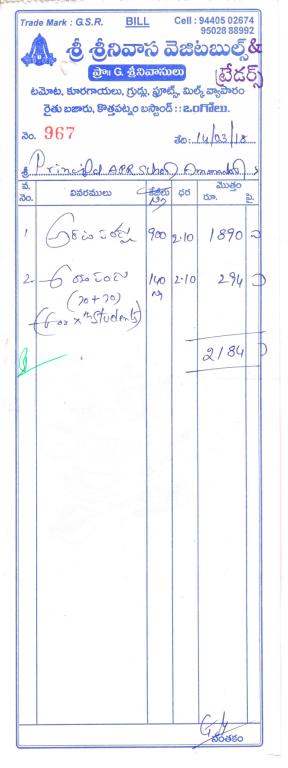 Trade Mark : G.S.R. BILL Cell : 94405 02674
95028 88992
శ్రీ శ్రీనివాస వెజిటబుల్స్ &
ప్రొ॥ G. శ్రీనివాసులు ట్రేడర్స్
టమోట, కూరగాయలు, గ్రుడ్లు, ఫ్రూట్స్, మిల్క్ వ్యాపారం
రైతు బజారు, కొత్తపట్నం బస్టాండ్ :: ఒంగోలు.
నెం. 967 తేది : 14/03/18
శ్రీ Principal APR School
వ. నెం. వివరములు ధర మొత్తం రూ. పై.
1 అరటి పళ్ళు 900 2.10 1890
2 140 2.10 294
(70+70)
(For Students)
2184
సంతకం